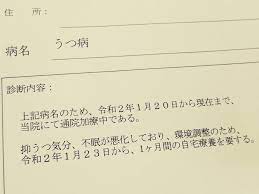 住 所：
病名 うつ病
診断内容：
上記病名のため、令和２年１月２０日から現在まで、
当院にて通院加療中である。
抑うつ気分、不眠が悪化しており、環境調整のため、
令和２年１月２３日から、１ヶ月間の自宅療養を要する。